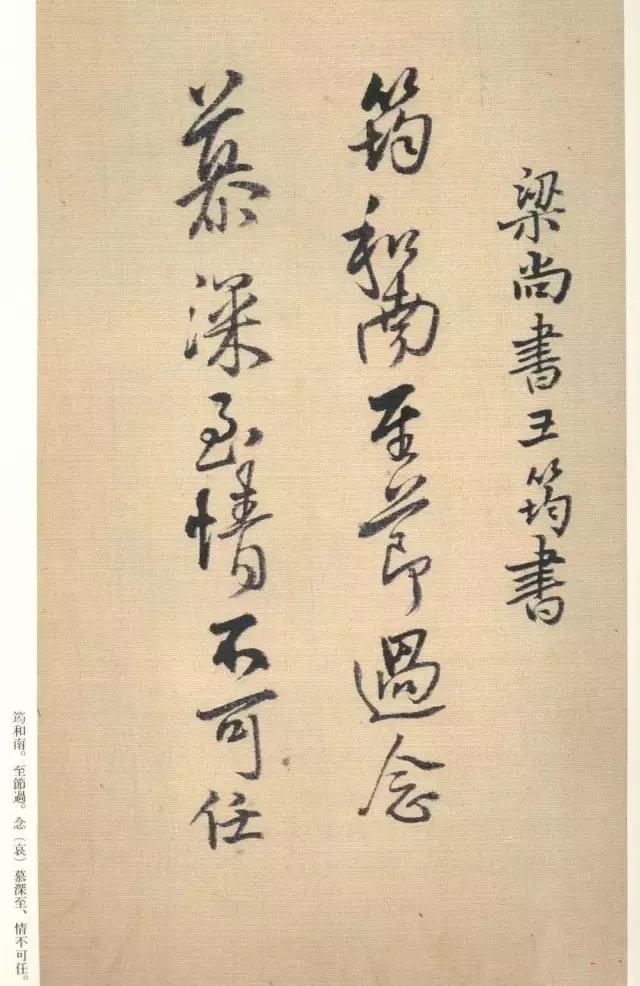 梁尚書王筠書
筠和南至節過念
慕深至情不可任
筠和南。至節過。念（哀）慕深至、情不可任。